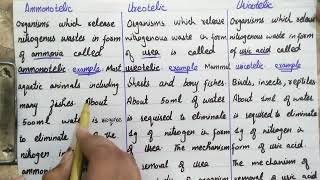 Ammonotelic
Organisms which release
nitogenous wastes in form
of ammonia called
ammonotelic example. Most
aquatic animals including
many fishes. About
500ml water is require
to eliminate of the
nitrogen in
ammonia
Ureotelic
Organisms which release
nitrogenous waste in form
of urea is called
ureotelic example Mammal
Sharks and bony fishes.
About 50ml of water
is required to eliminate
1g of nitrogen in form
of Urea. The mechanism
removal of Urea
Uricotelic
Organisms which release
nitrogenous waste in form
of uric acid called
uricotelic. example
Birds, insects, reptiles
About 1ml of water
is required to eliminate
1g of nitrogen in
form of uric acid
The mechanism of
removal of uric acid